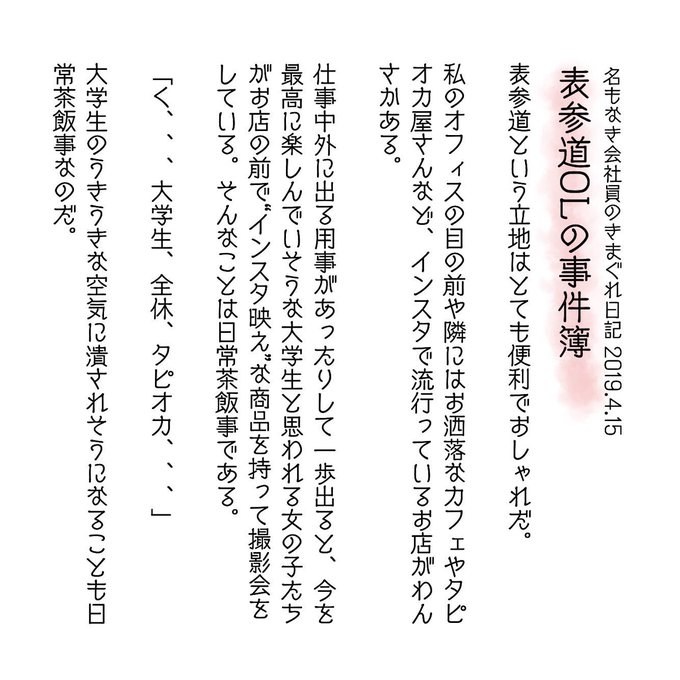 名もなき会社員のきまぐれ日記 2019.4.15
表参道OLの事件簿
表参道という立地はとても便利でおしゃれだ。
私のオフィスの目の前や隣にはお洒落なカフェやタピ
オカ屋さんなど、インスタで流行っているお店がわん
さかある。
仕事中外に出る用事があったりして一歩出ると、今を
最高に楽しんでいそうな大学生と思われる女の子たち
がお店の前で“インスタ映え”な商品を持って撮影会を
している。そんなことは日常茶飯事である。
「く、、、大学生、全休、タピオカ、、、」
大学生のうきうきな空気に潰されそうになることも日
常茶飯事なのだ。